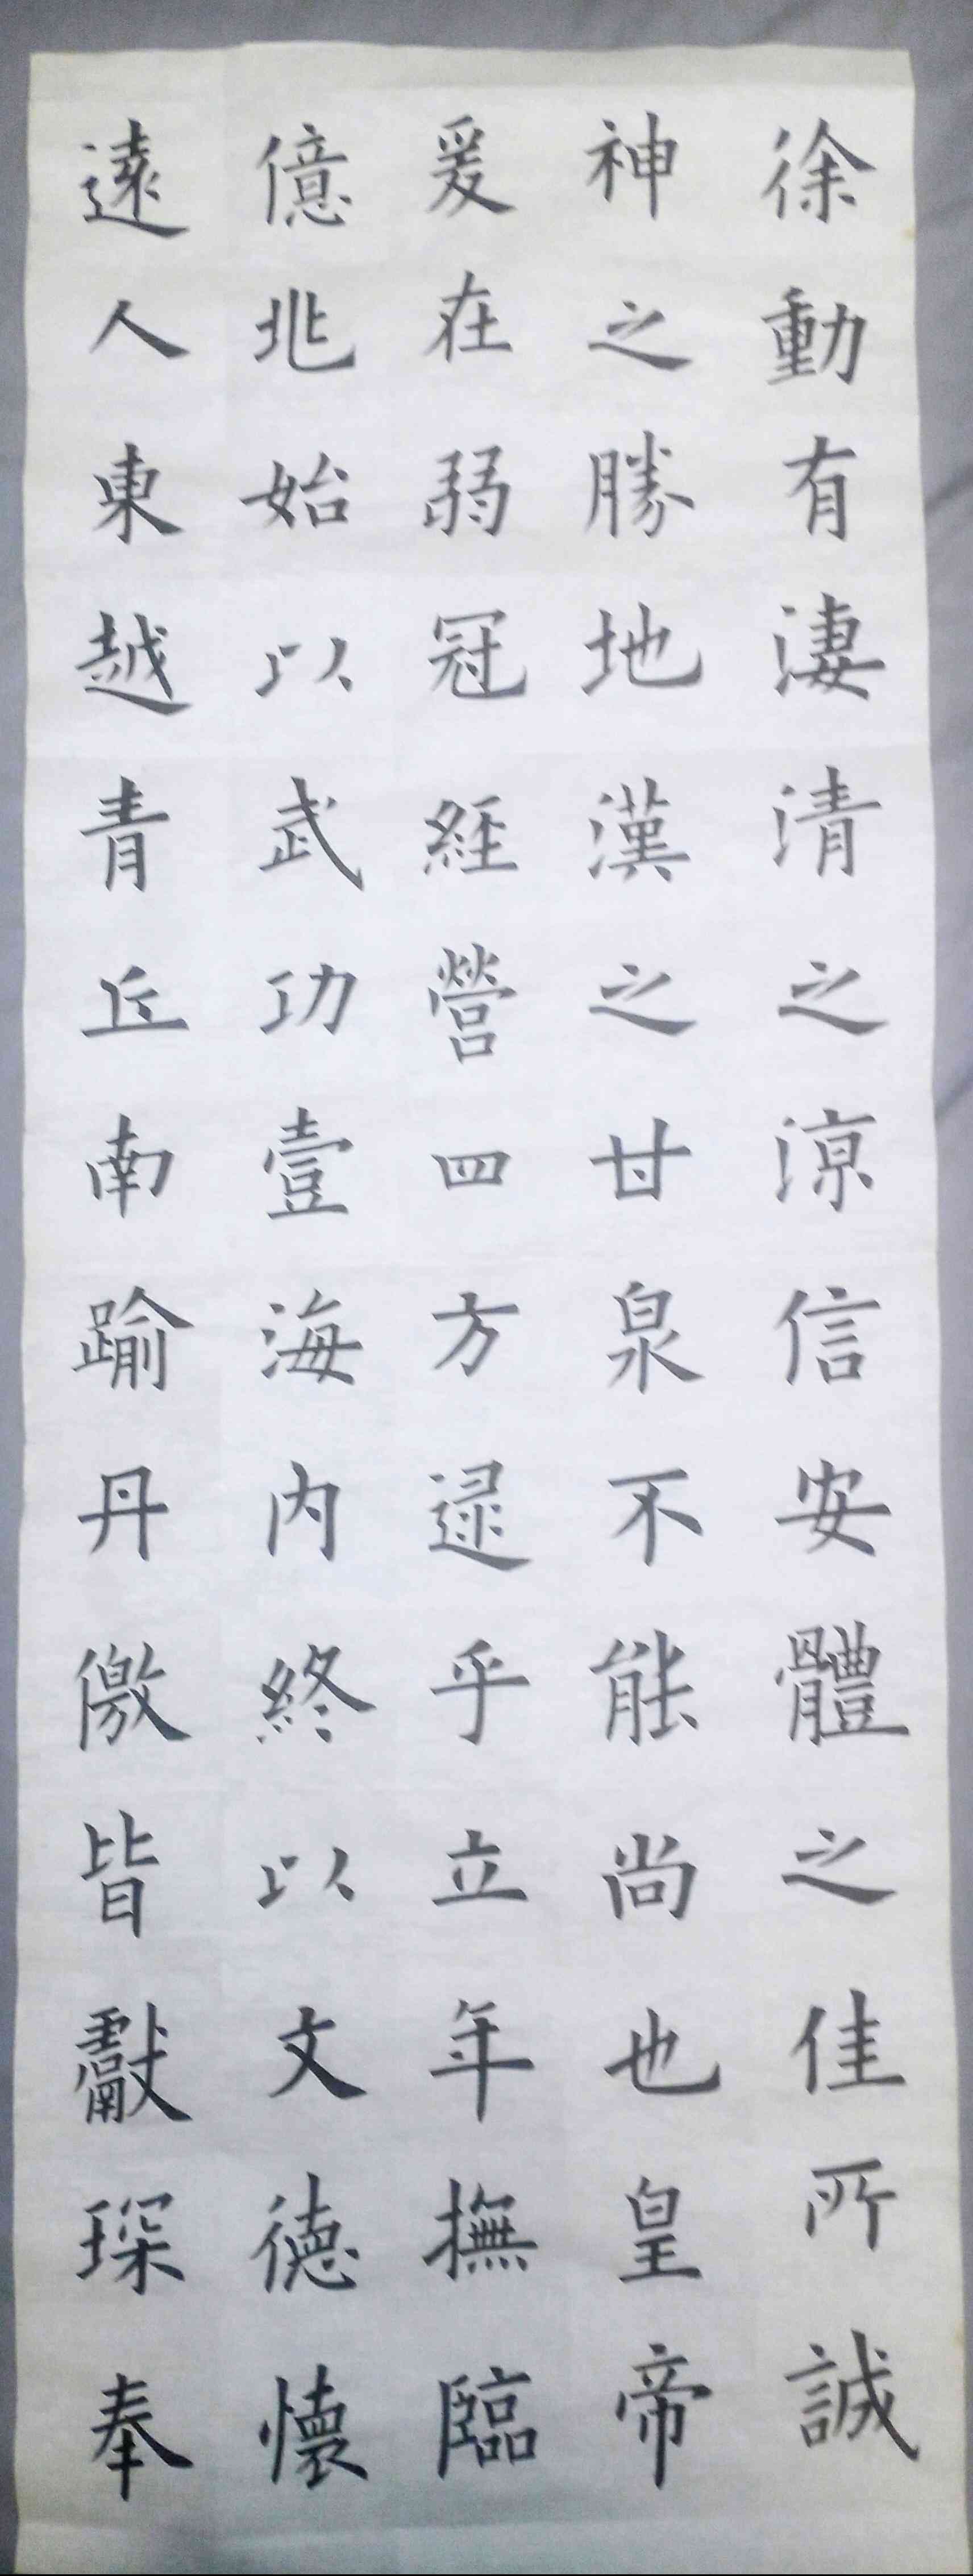 徐動有淒清之涼信安體之佳所誠
神之勝地漢之甘泉不能尚也皇帝
爰在弱冠經營四方逯乎立年撫臨
億兆始以武功壹海內終以文德懷
遠人東越青丘南踰丹儌皆獻琛奉